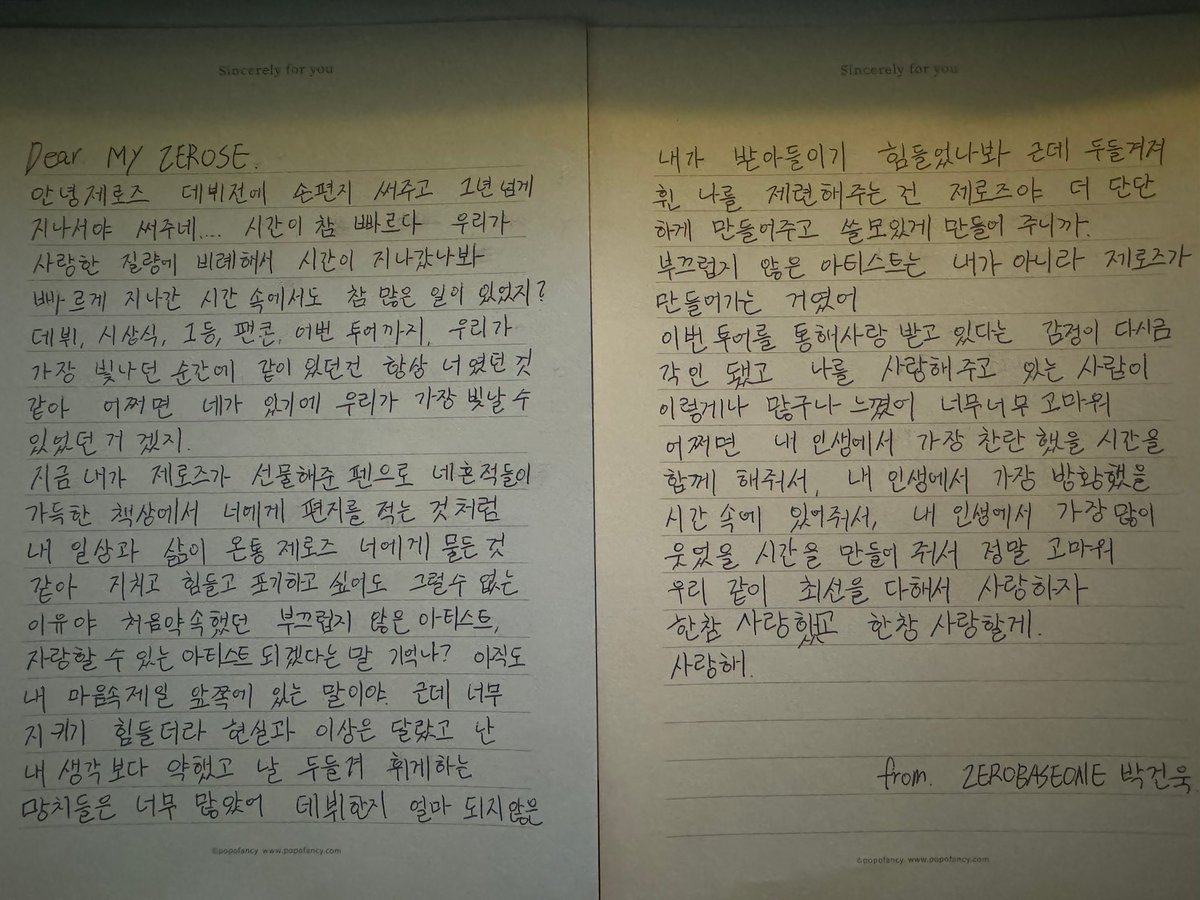 Sincerely for you
Dear MY ZEROSE.
안녕 제로즈 데뷔전에 손편지 써주고 1년 넘게
지나서야 써주네.... 시간이 참 빠르다 우리가
사랑한 질량에 비례해서 시간이 지나갔나봐
빠르게 지나간 시간 속에서도 참 많은 일이 있었지?
데뷔, 시상식, 1등, 팬콘, 이번 투어까지, 우리가
가장 빛나던 순간에 같이 있던건 항상 너였던 것
같아 어쩌면 네가 있기에 우리가 가장 빛날 수
있었던 거 겠지.
지금 내가 제로즈가 선물해준 펜으로 네흔적들이
가득한 책상에서 너에게 편지를 적는 것 처럼
내 일상과 삶이 온통 제로즈 너에게 물든 것
같아 지치고 힘들고 포기하고 싶어도 그럴수 없는
이유야 처음약속했던 부끄럽지 않은 아티스트,
자랑할 수 있는 아티스트 되겠다는 말 기억나? 아직도
내 마음속 제일 앞쪽에 있는 말이야. 근데 너무
지키기 힘들더라 현실과 이상은 달랐고 난
내 생각보다 약했고 날 두들겨 휘게하는
망치들은 너무 많았어 데뷔한지 얼마 되지않은
©popofancy www.popofancy.com
Sincerely for you
내가 받아들이기 힘들었나봐 근데 두들겨져
휜 나를 제련해주는 건 제로즈야 더 단단
하게 만들어주고 쓸모있게 만들어 주니까.
부끄럽지 않은 아티스트는 내가 아니라 제로즈가
만들어가는 거였어
이번 투어를 통해사랑 받고 있다는 감정이 다시금
각인 됐고 나를 사랑해 주고 있는 사람이
이렇게나 많구나 느꼈어 너무너무 고마워
어쩌면 내 인생에서 가장 찬란 했을 시간을
함께 해줘서, 내 인생에서 가장 방황했을
시간 속에 있어줘서, 내 인생에서 가장 많이
웃었을 시간을 만들어 줘서 정말 고마워
우리 같이 최선을 다해서 사랑하자
한참 사랑했고 한창 사랑할게.
사랑해.
from. ZEROBASEONE 박건욱.
©popofancy www.popofancy.com